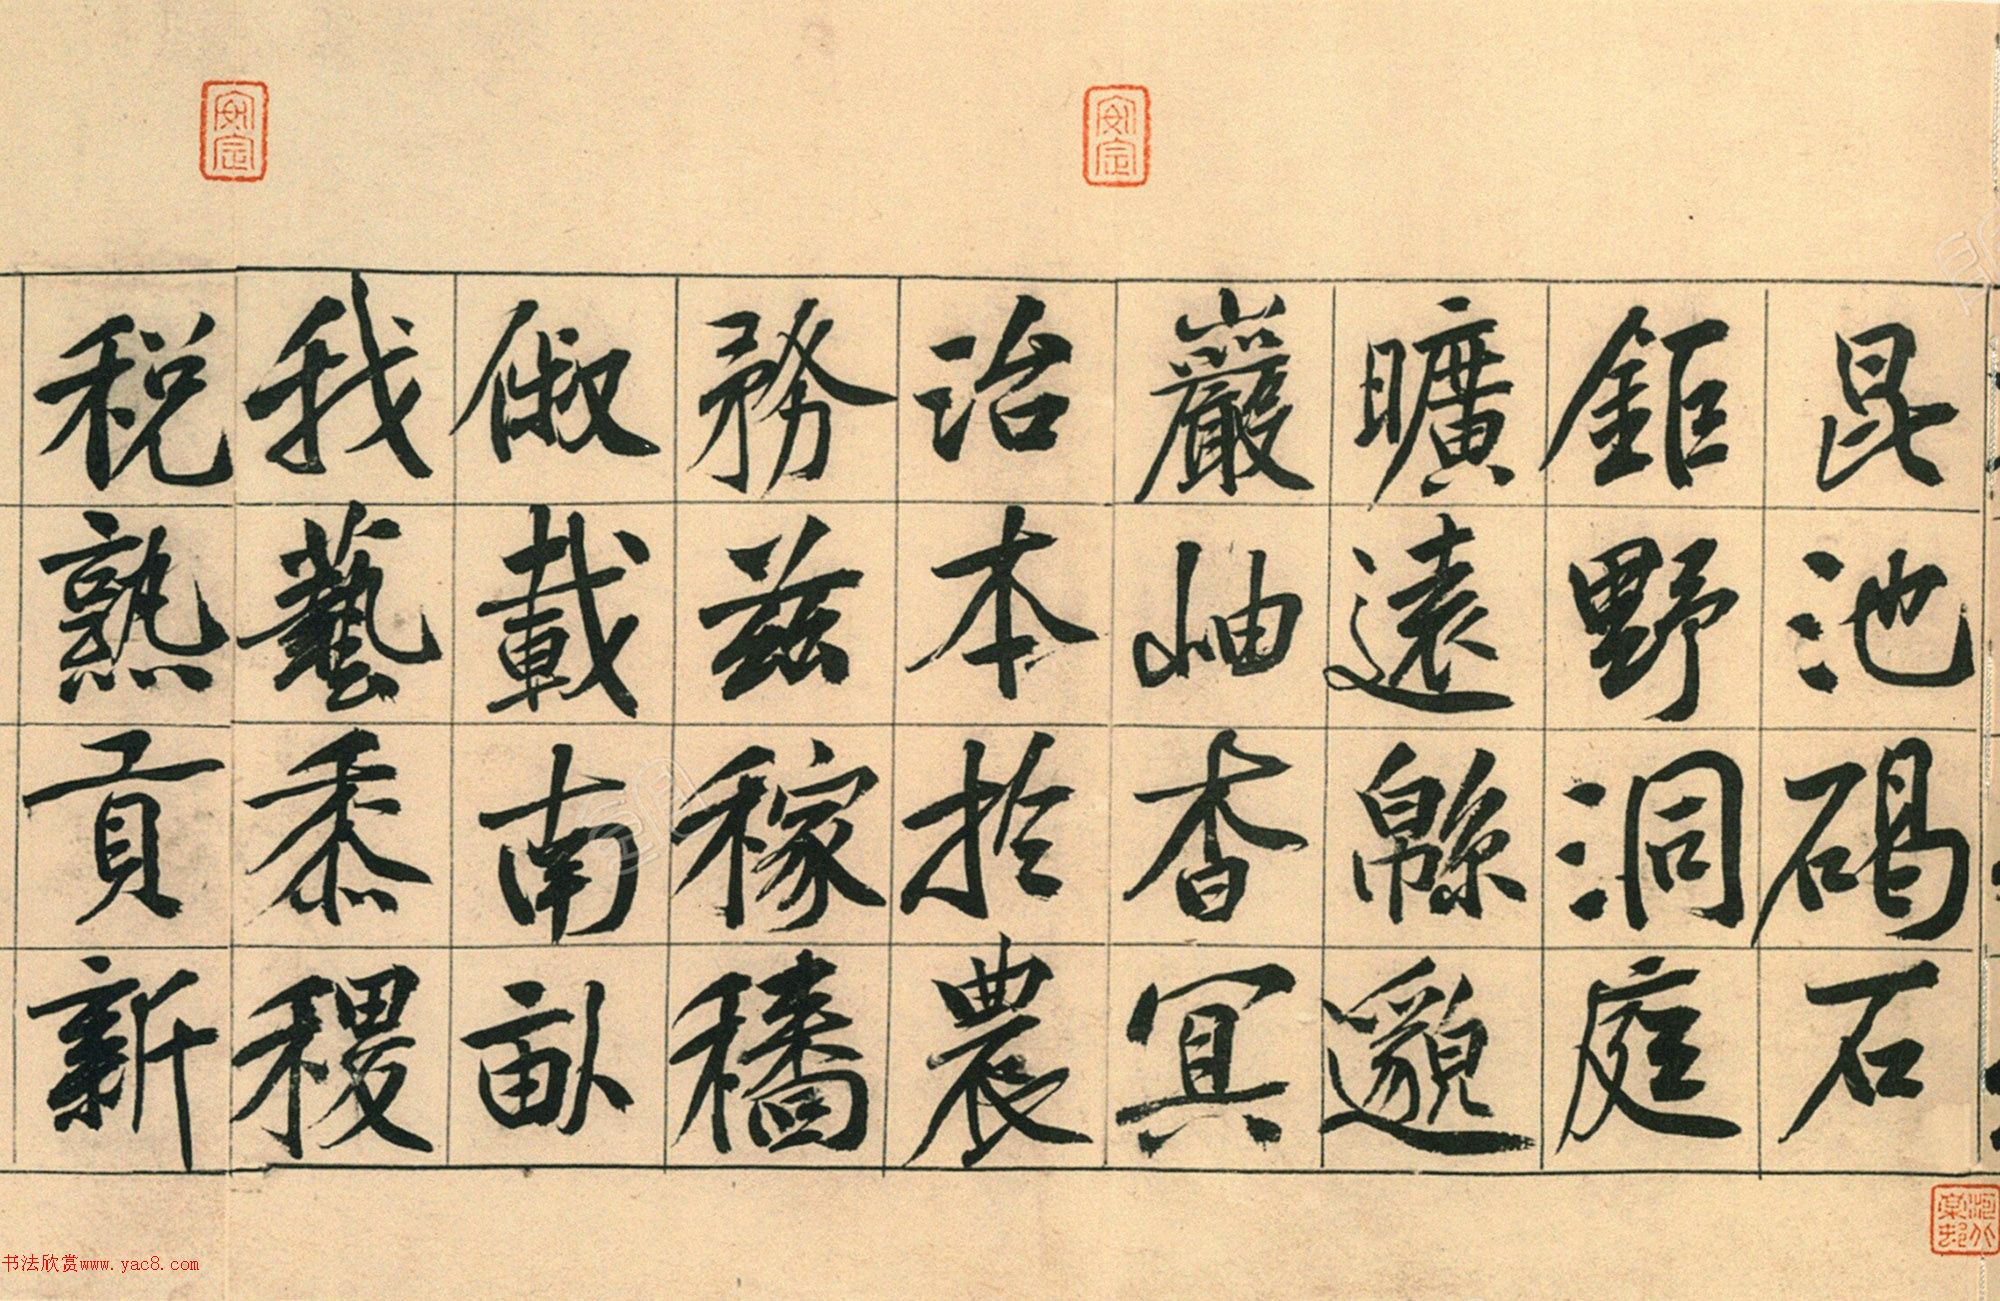 昆池碣石
鉅野洞庭
曠遠緜邈
巖岫杳冥
治本於農
務茲稼穡
俶載南畝
我藝黍稷
税熟貢新
安定
安定
书法欣赏www.yac8.com